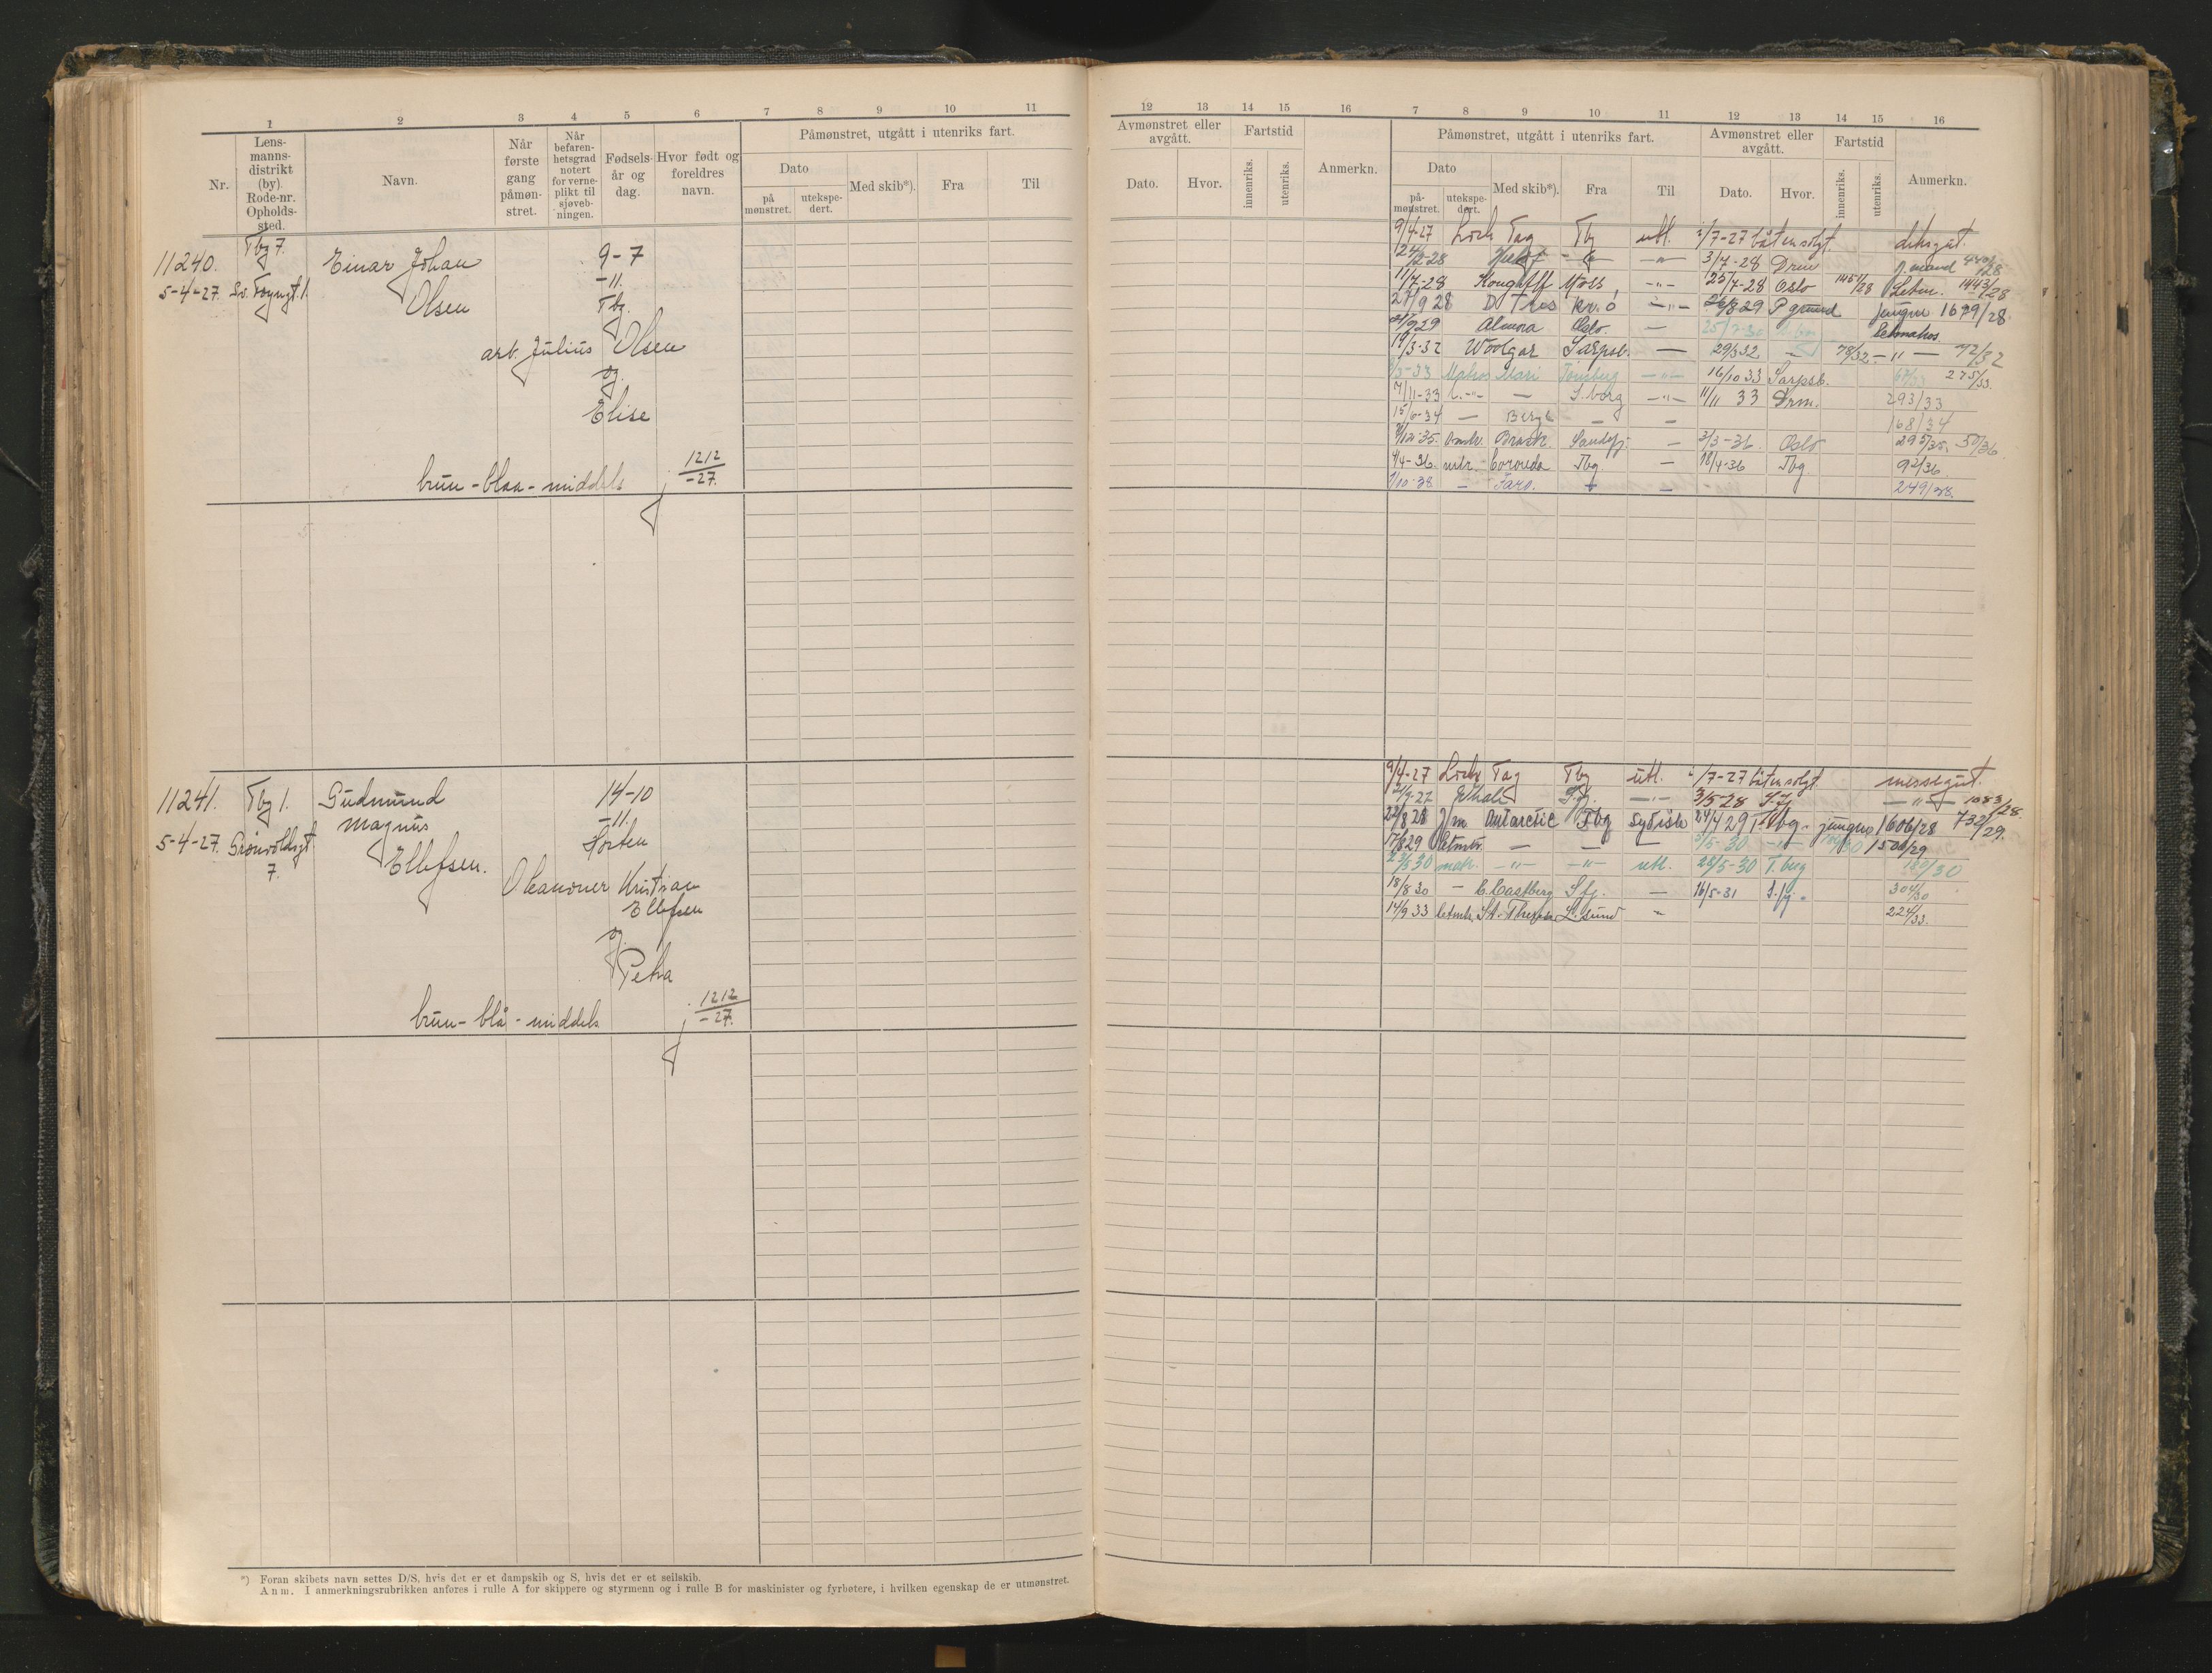 1 2 3 4 5 6 7 8 9 10 11
Nr.
Lens-
manns-
distrikt
(by).
Rode-nr.
Opholds-
sted.
Navn.
Når
første
gang
påmøn-
stret.
Når
befaren-
hetsgrad
notert
for verne-
plikt til
sjøveb-
ningen.
Fødsels-
år og
dag.
Hvor født og
foreldres
navn.
Påmønstret, utgått i utenriks fart.
Dato
på
mønstret.
utekspe-
dert.
Med skib*).
Fra
Til
11240. Tbg 7. Einar Johan 9-7
5-4-27. Olsen -11.
Tbg.
arb. Julius Olsen
og
Elise
brun - blaa - middels 1212
-27.
11241. Tbg 1. Gudmund 14-10
magnus -11.
5-4-27. Grønvoldsgt Horten
7. Ellefsen.
Oleanoner Kristian
Ellefsen
og
Petra
brun - blå - middels 1212
-27.
*) Foran skibets navn settes D/S, hvis det er et dampskib og S, hvis det er et seilskib.
Anm. I anmerkningsrubrikken anføres i rulle A for skippere og styrmenn og i rulle B for maskinister og fyrbøtere, i hvilken egenskap de er utmønstret.
12 13 14 15 16 7 8 9 10 11 12 13 14 15 16
Avmønstret eller
avgått.
Dato.
Hvor.
Fartstid
innenriks.
utenriks.
Anmerkn.
Påmønstret, utgått i utenriks fart.
Dato
på-
mønstret.
utekspe-
dert.
Med skib*).
Fra
Til
Avmønstret eller
avgått.
Dato.
Hvor.
Fartstid
innenriks.
utenriks.
Anmerkn.
9/4-27 Lock Tag Tbg utl. 1/7-27 båten solgt deksgut.
3/7-28 Drm
11/7-28 Kong Alf Moss -"- 25/7-28 Oslo 1443/28
27/9 28 -"- 26/8 29 P grund jungm 1679/28
Almora Oslo. —
19/3-32 Woolgar Sarpsb. — 29/3 32 — 78/32 -"- — 72/32
Mari Tønsberg -"- 16/10 33 Sarpsb. 275/33.
7/11-33 -"- — S.borg -"- 11/11 33 Drm. 293/33
15/6-34 — — — 168/34
Sandefj. — 3/3-36. Oslo 295/35. 50/36
4/4-36. matr. Coronda Tbg. — 18/4-36 Tbg. 92/36.
1/10-38 — Taro. — 249/38.
9/4-27 Lock Tag Tbg utl. 1/7-27 båten solgt messegut.
-"- 3/5-28 S.fj. -"- 1083/28.
22/8 28 Antarctic Tbg Sydishv 24/4 29 Tbg. jungm 1606/28 732/29.
17/8 29 — — — 3/5-30 -"- 1506/29
23/5 30 matr. -"- -"- utl. 25/5-30 T.berg 180/30
18/8 30 — C. Castberg S fj. — 16/5-31 S.fj. 304/30
14/9 33 St. Theresa L. sund 224/33.